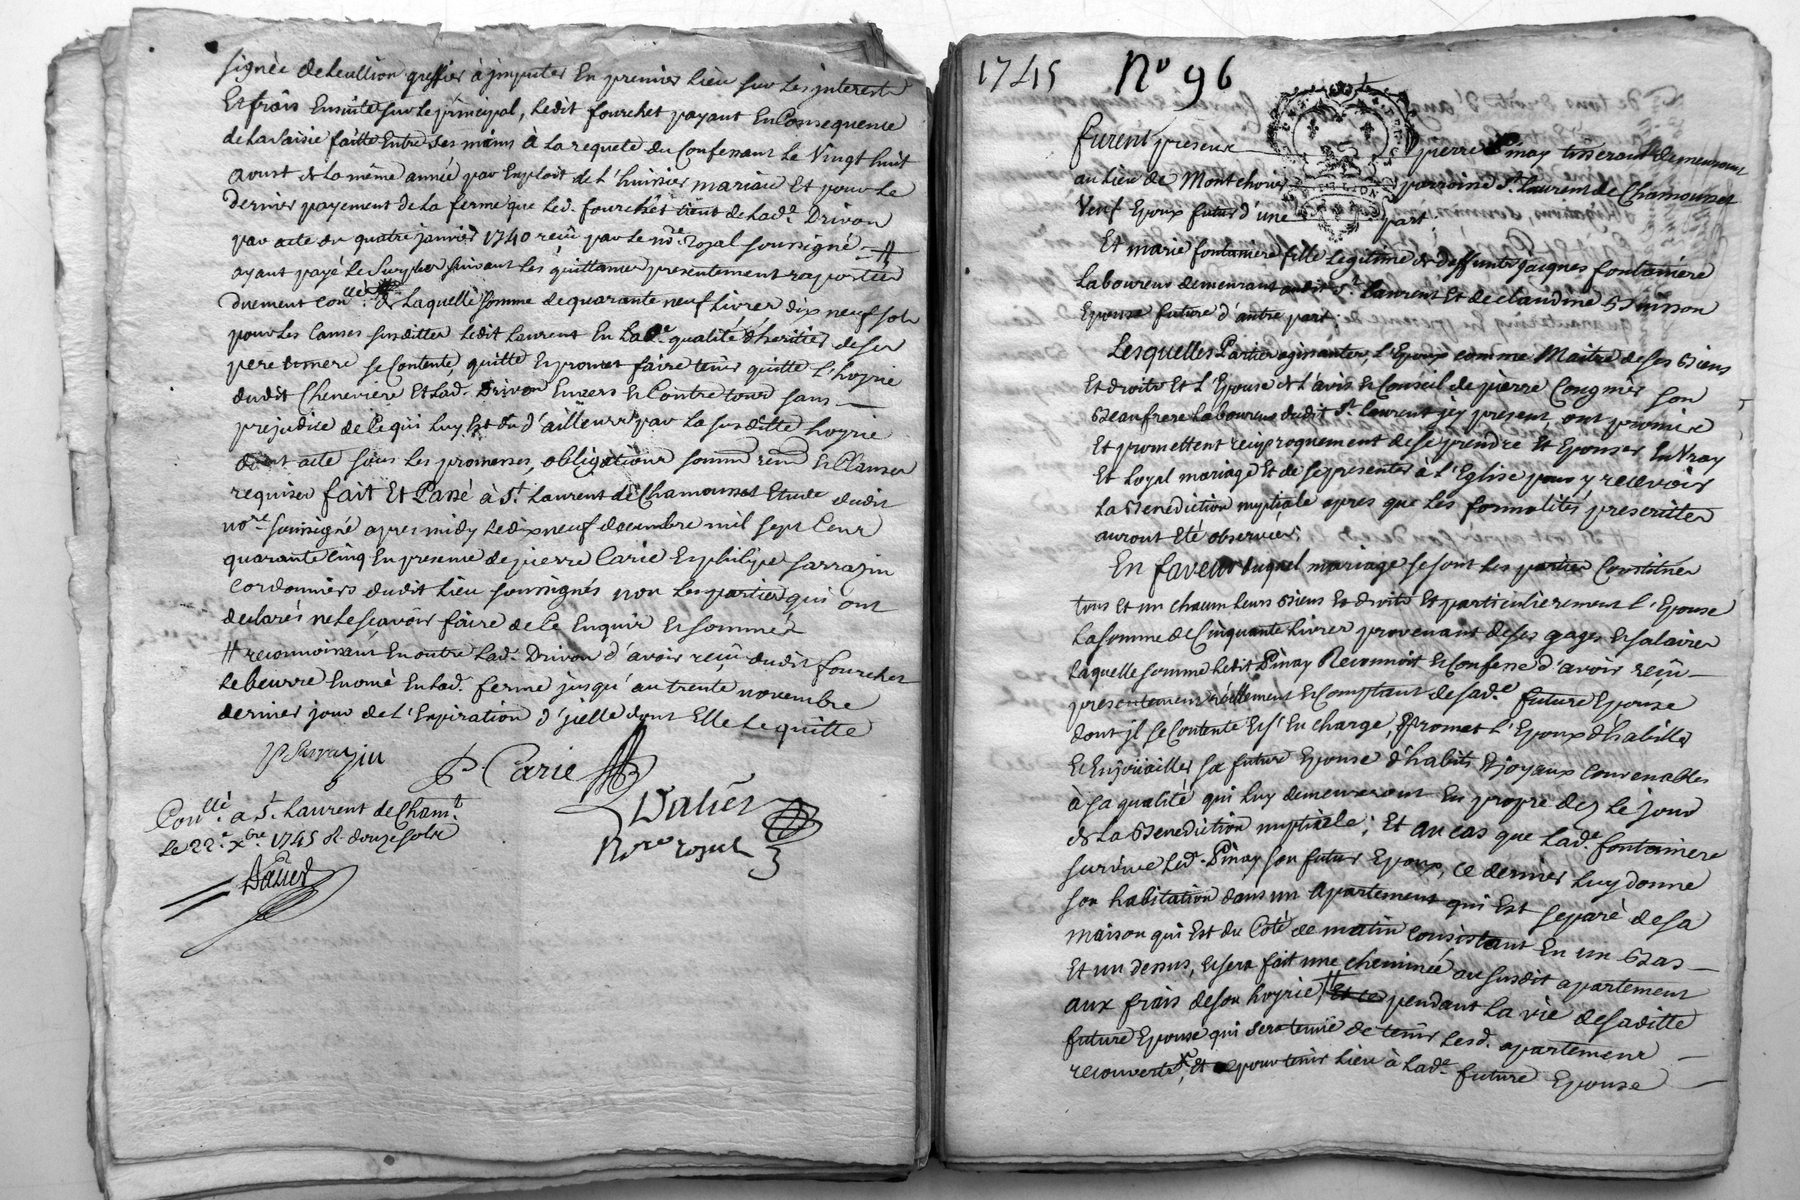 signée deLeullion greffier à jmputer En premier Lieu sur Les jnterests
Et frais Ensuite sur Le principal, Ledit fourchet payant En Consequence
de La saisie faitte Entre ses mains à La requete du Confessant Le Vingt huit
aoust de La même année par Exploit de L'huissier mariau Et pour Le
Dernier payement de La ferme que Led. fourchet tient de Lad.e Drivon
par acte du quatre janvier 1740 reçû par Le no.re Royal soussigné
ayant payé Le Surplus suivant Les quittances presentement raportées
Duement Con.llé de Laquelle somme de quarante neuf Livres dix neuf sols
pour Les Causes susdittes Ledit Laurent En Lad.e qualité d'heritier de ses
pere et mere se Contente, quitte Et promet faire tenir quitte L'hoyrie
dudit Cheneviere Et Lad. Drivon Envers Et Contre tous sans
prejudice de Ce qui Luy Est dû d'ailleurs par La susditte hoyrie
dont acte sous Les promesses, obligations soumm. ren. Et Clauses
requises fait Et Passé à S.t Laurent de Chamousset Etude dudit
no.re soussigné apres midy Le dix neuf decembre mil sept Cent
quarante Cinq En presence de pierre Carie Et philipe sarrazin
Cordonniers dudit Lieu soussignés non Les parties qui ont
declarés ne Le sçavoir faire de Ce Enquis Et sommés
# reconnoissant En outre Lad. Drivon d'avoir reçû dudit fourchet
Le beurre En Lad. ferme jusqu'au trente novembre
dernier jour de L'Expiration d'jcelle dont Elle Le quitte
P Sarrazin
P Carie
Dalier
No.re royal
Con.llé a S.t Laurent de Cham.t
Le 22.e x.bre 1745 R. douze sols
Dalier
1745 N.o 96
furent presens pierre Pinay tisserant demeurant
au Lieu de Montchorier parroisse S.t Laurent de Chamousset
Veuf Epoux futur d'une part;
Et marie fontaniere fille Legitime de deffunts jacques fontaniere
Laboureur demeurant audit S.t Laurent Et de claudine Buisson
Epouse future d'autre part;
Lesquelles Parties agissantes, L'Epoux comme Maitre de ses Biens
Et droits Et L'Epouse de L'avis Et Conseil de pierre Cougnier son
Beaufrere Laboureur dudit S.t Laurent jcy present, ont promis
Et promettent reciproquement de se prendre Et Epouser En Vray
Et Loyal mariage Et de se presenter à L'Eglise pour y recevoir
La Benediction nuptiale apres que Les formalités prescrittes
auront Eté observées
En faveur duquel mariage se sont Les parties Constitués
tous Et un chacun Leurs Biens Et droits Et particulierement L'Epouse
La somme de Cinquante Livres provenant de ses gages Et salaires
Laquelle somme Ledit Pinay Reconnoit Et Confesse d'avoir reçû
presentement réellement Et comptant de sad.e future Epouse
dont jl se Contente Et s'En charge, Promet L'Epoux d'habiller
Et Enjoüailler sa future Epouse d'habits Et joyaux convenables
à sa qualité qui Luy demeureront En propre des Le jour
de La Benediction nuptiale; Et au cas que Lad.e fontaniere
survive Led. Pinay son futur Epoux, ce dernier Luy donne
son habitation dans un Apartement qui Est separé de sa
maison qui Est du Coté de matin consistant En un Bas
Et un dessus, Et sera fait une cheminée au susdit apartement
aux frais de son hoyrie # Et ce pendant La vie de saditte
future Epouse qui sera tenüe de tenir Led. apartement
recouvert, Et pour tenir Lieu à Lad.e future Epouse